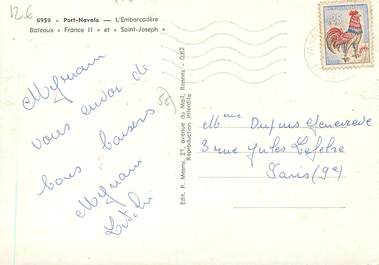 12.6
6959 - Port-Navalo — L'Embarcadère
Bateaux « France II » et « Saint-Joseph »
Myriam
vous envoi de
bons baisers
Myriam
50
Edit. P. Masny, 27, avenue du Mail, Rennes - 0,62
Reproduction interdite
Mme Dupuis Geneviève
3 rue Jules Lefebre
Paris (9e)